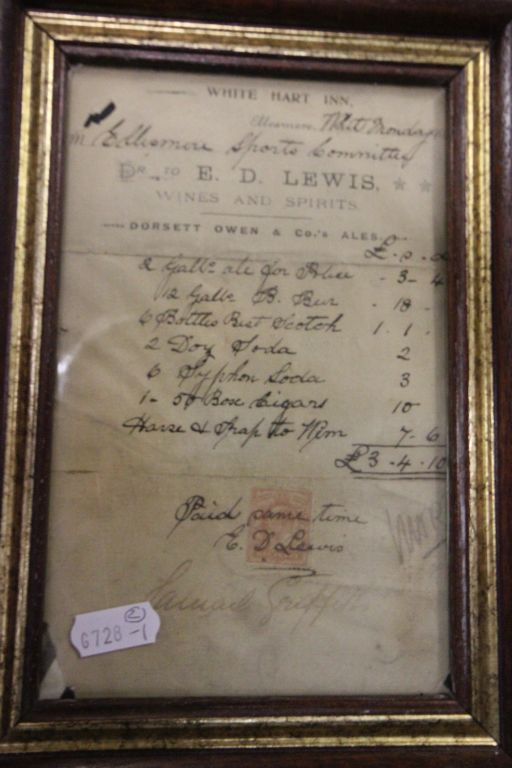 WHITE HART INN,
Ellesmere, Whit Monday
m Ellismere Sports Committee
Dr. to E. D. LEWIS,
WINES AND SPIRITS.
DORSETT OWEN & Co.'s ALES.
£ - s - d
2 Galls ale for Police - 3 - 4
12 Galls B. Beer - 18 -
6 Bottles Best Scotch 1. 1.
2 Doz Soda 2
6 Syphon Soda 3
1 - 50 Box Cigars 10
Horse & Trap to Wem 7 - 6
£3 - 4 - 10
Paid same time
E. D Lewis
Samuel
6728-1
2